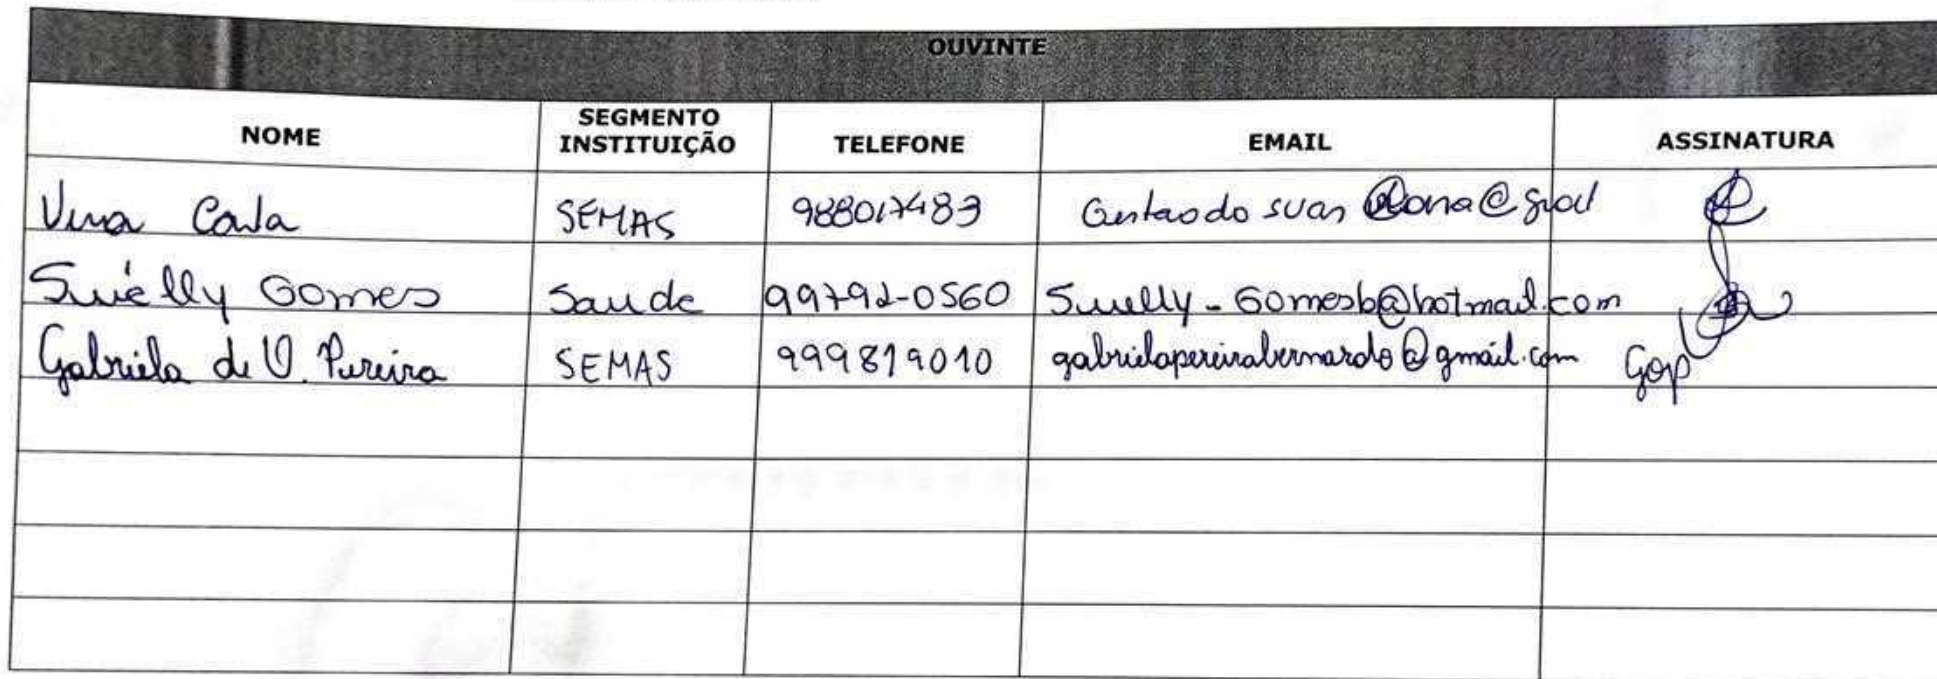 OUVINTE
NOME SEGMENTO INSTITUIÇÃO TELEFONE EMAIL ASSINATURA
Vera Carla SEMAS 988017483 Gestaodo suas
Suielly Gomes Saude 99792-0560 Suielly-Gomesb@hotmail.com
Gabriela de O. Pereira SEMAS 999819010 gabrielapereirabernardo@gmail.com Gop